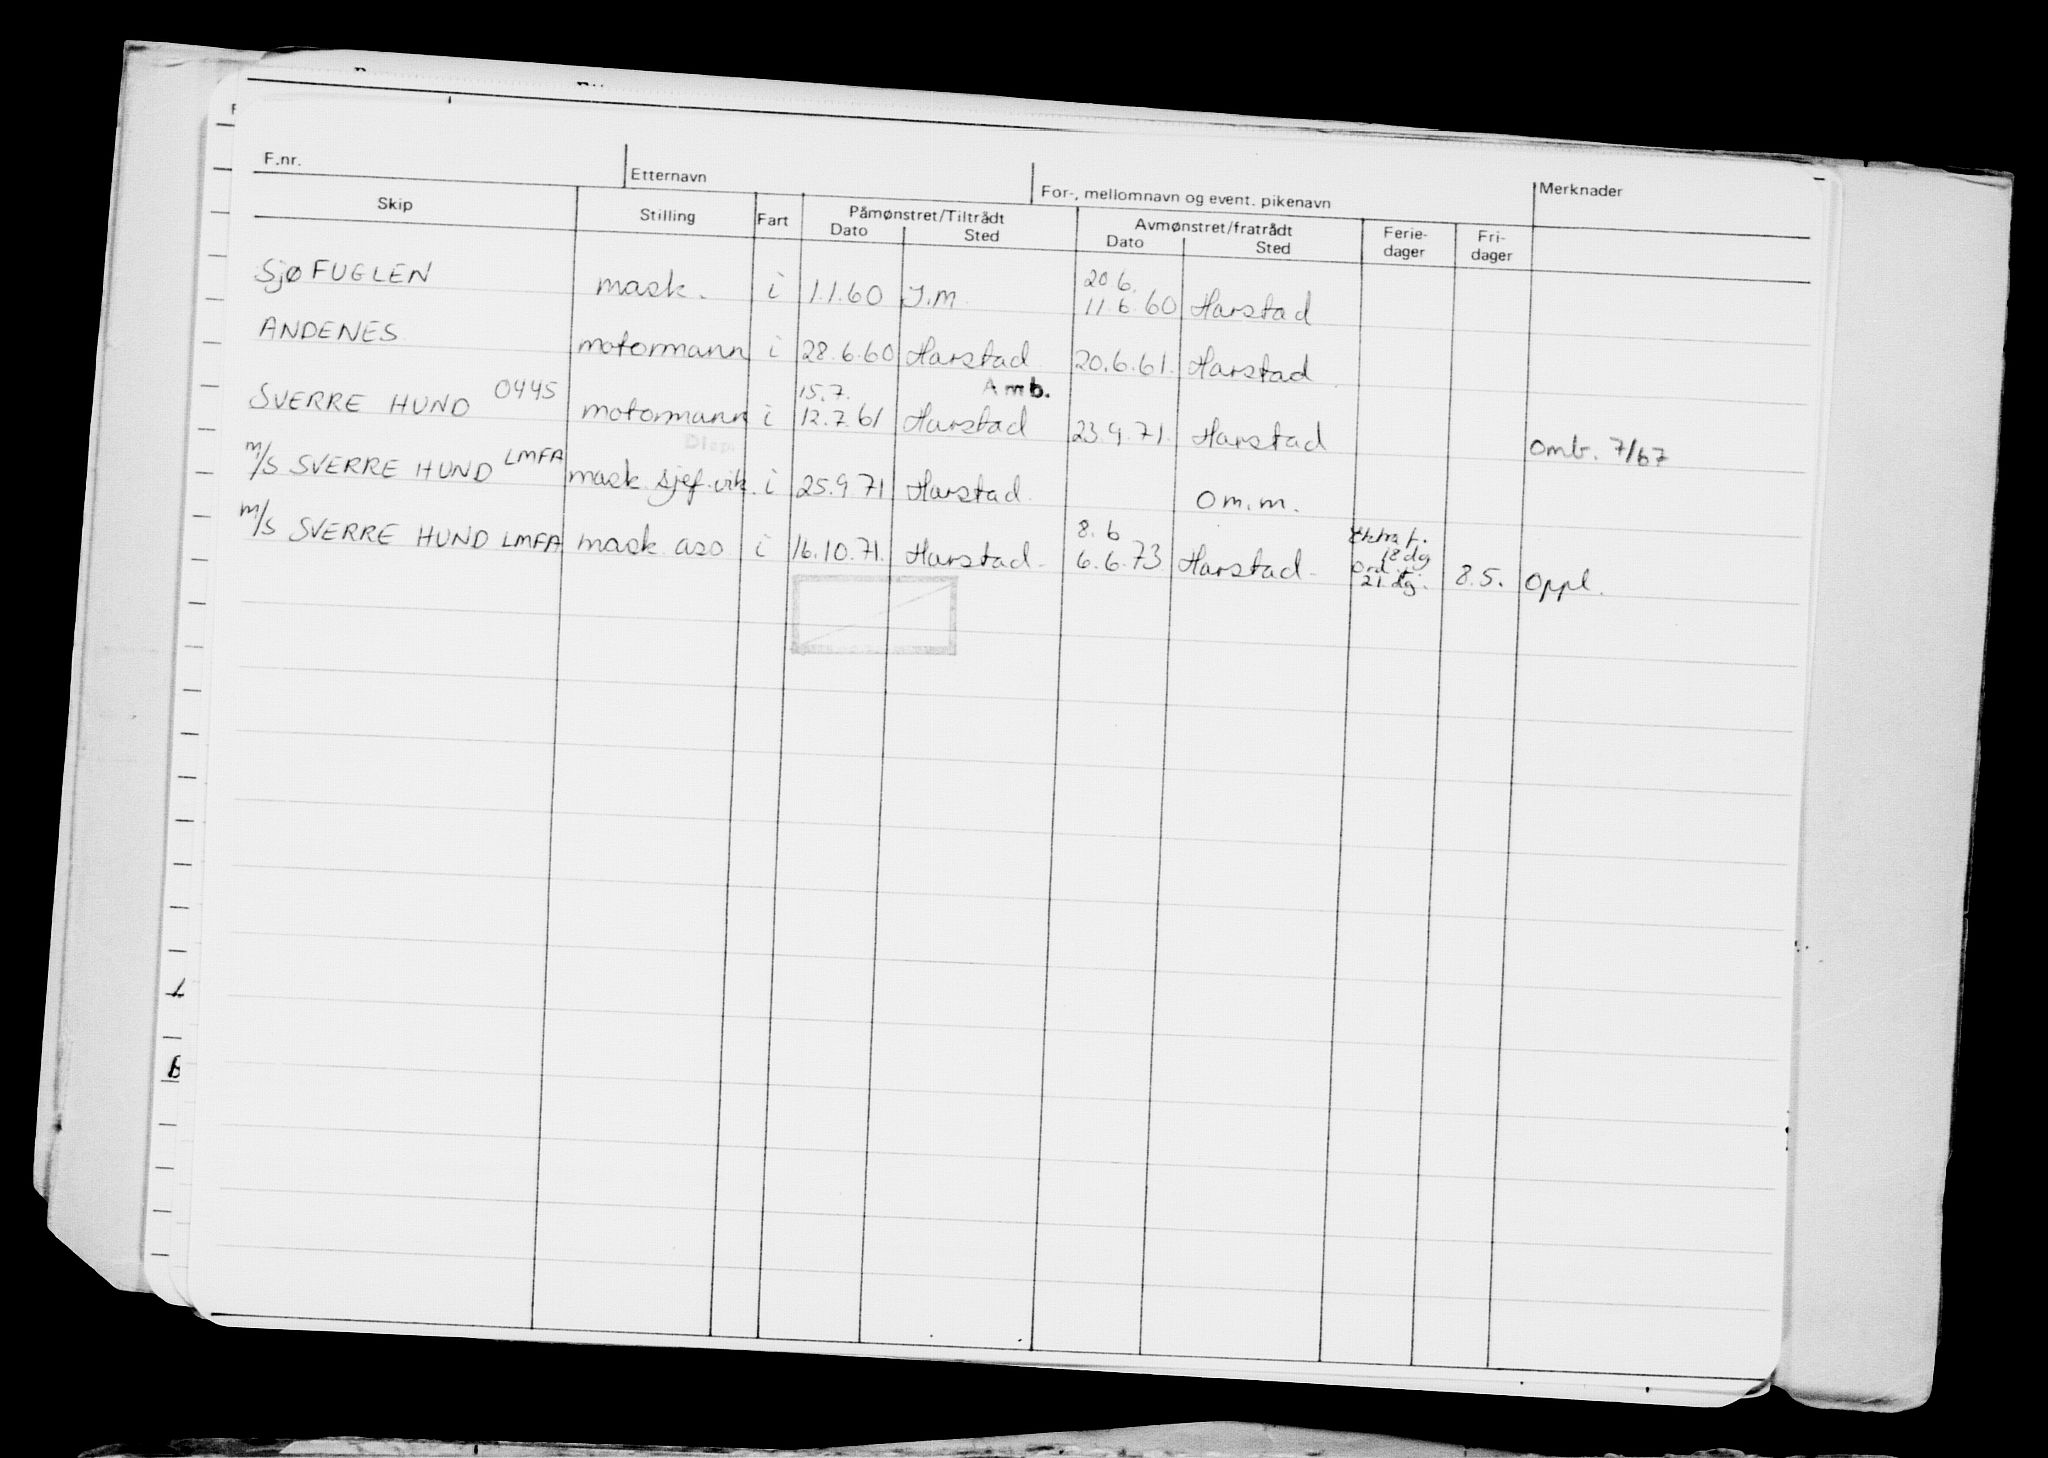 F.nr. Etternavn For-, mellomnavn og event. pikenavn Merknader
Skip Stilling Fart Påmønstret/Tiltrådt Avmønstret/fratrådt Ferie- Fri-
Dato Sted Dato Sted dager dager
20.6.
SJØFUGLEN mask. i 1.1.60 J.m. 11.6.60 Harstad
ANDENES motormann i 28.6.60 Harstad 20.6.61. Harstad
0445 15.7. Amb.
SVERRE HUND motormann i 12.7.61 Harstad 23.9.71. Harstad Omb. 7/67
m/s SVERRE HUND LMFA mask.sjef.vik. i 25.9.71 Harstad. Om.m.
8.6 Ekstra f.
18 dg
m/s SVERRE HUND LMFA mask. aso i 16.10.71. Harstad. 6.6.73 Harstad. Ord. 8.5. Oppl.
21 dg.